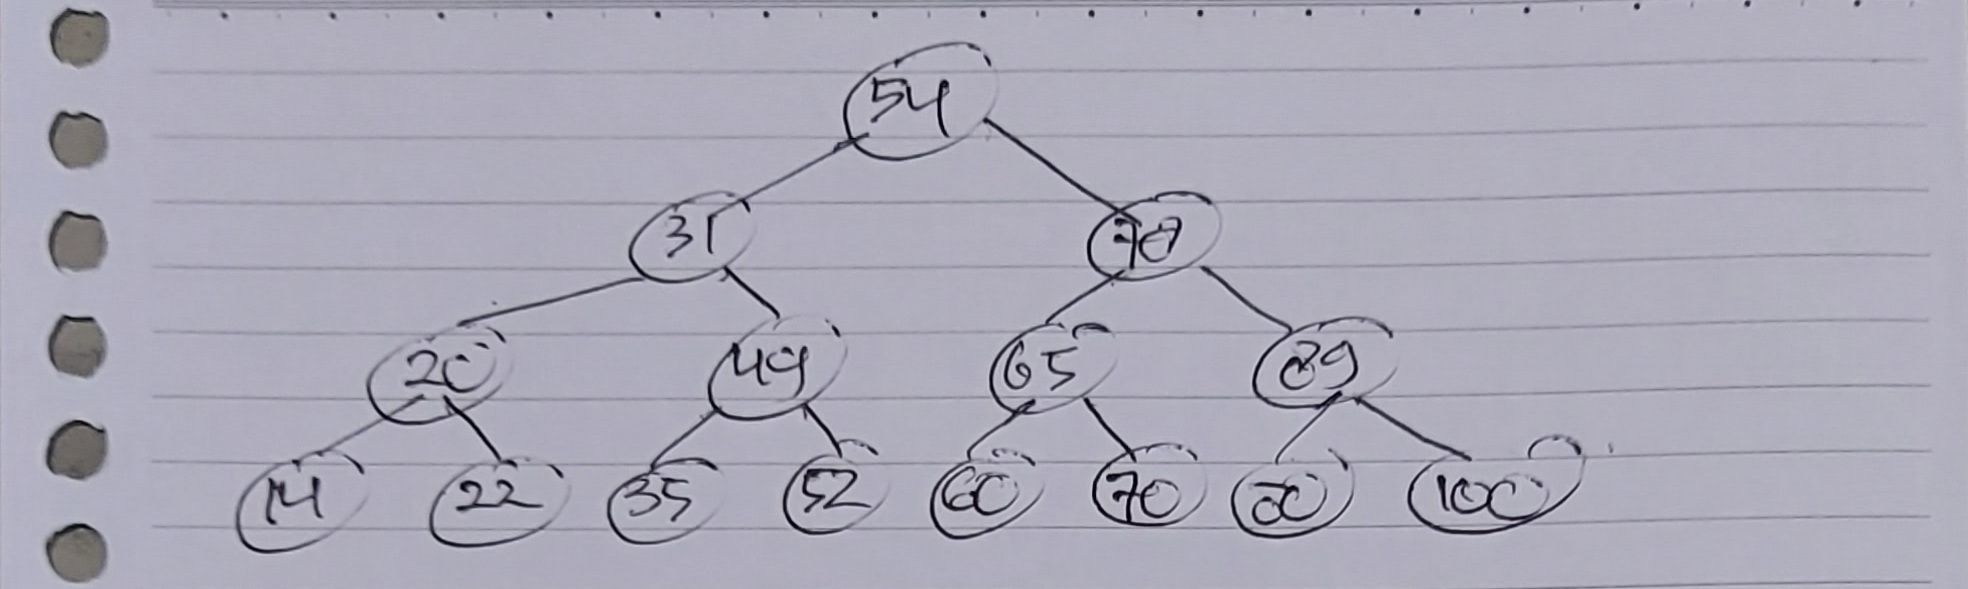 54
31
20 49 65 89
14 22 35 52 60 70 80 100